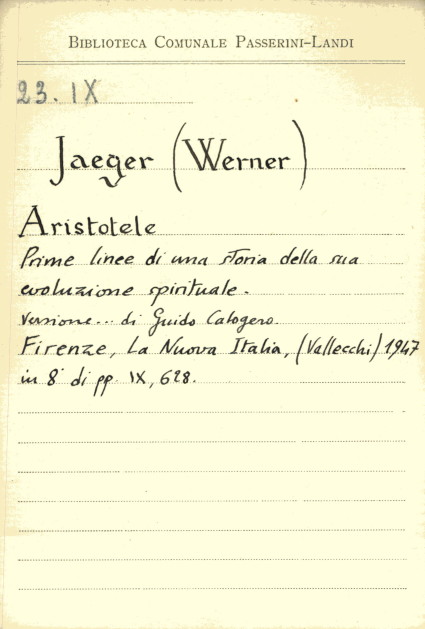 BIBLIOTECA COMUNALE PASSERINI-LANDI
23. IX
Jaeger (Werner)
Aristotele
Prime linee di una storia della sua
evoluzione spirituale.
versione... di Guido Calogero.
Firenze, La Nuova Italia, (Vallecchi) 1947
in 8° di pp. IX, 628.